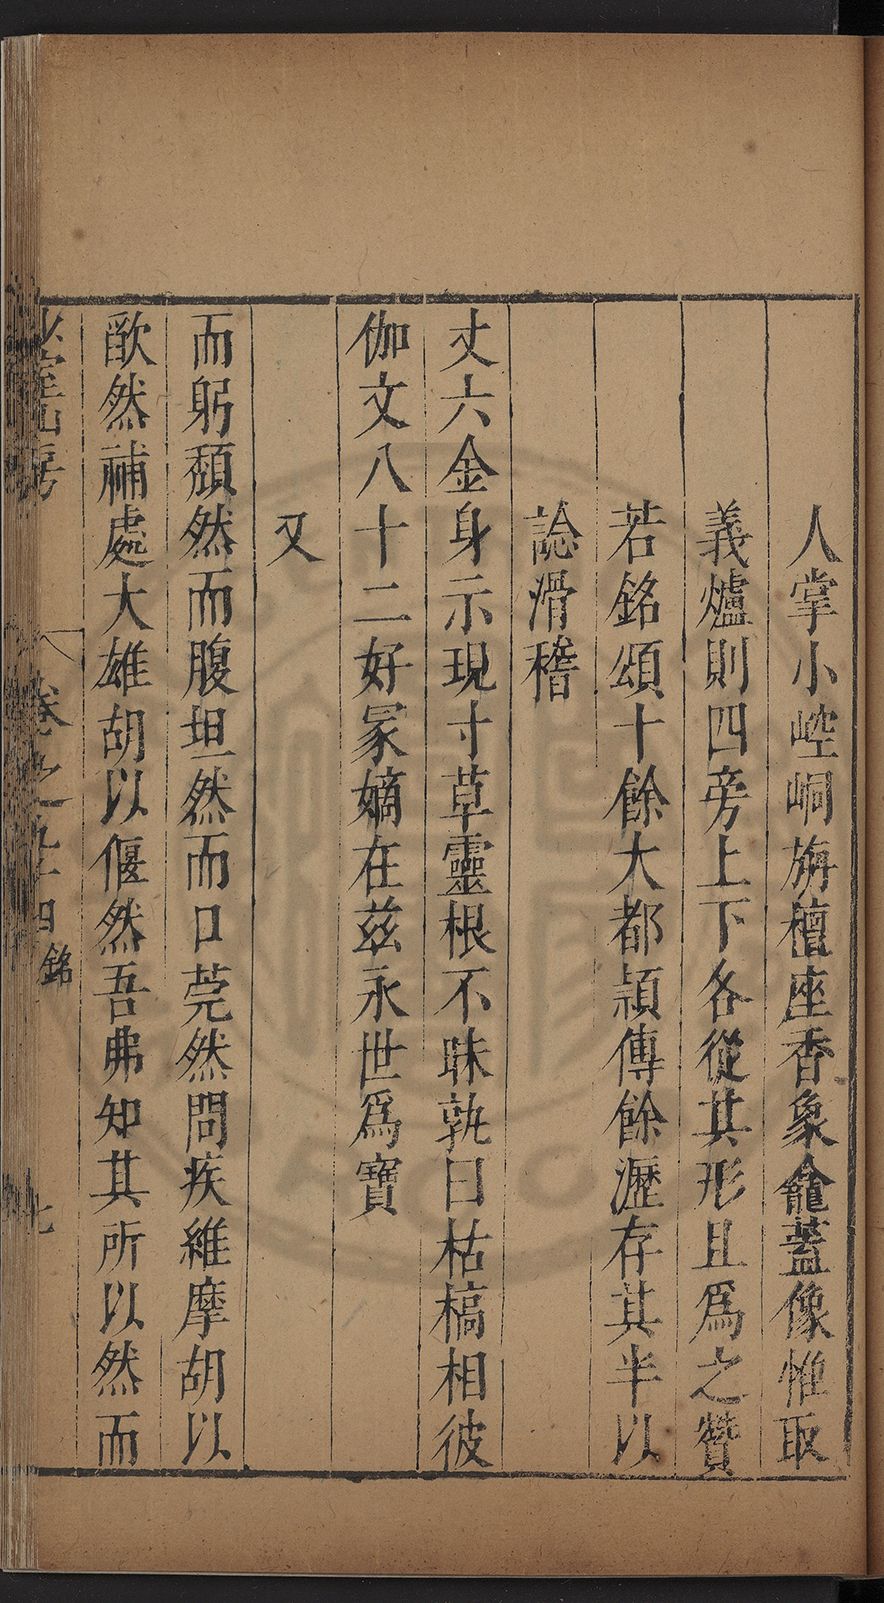 人掌小崆峒旃檀座香象龕蓋像惟取
義爐則四旁上下各從其形且爲之贊
若銘頌十餘大都頴傳餘瀝存其半以
諗滑稽
丈六金身示現寸草靈根不昧孰曰枯槁相彼
伽文八十二好冢嫡在兹永世爲寶
又
而躬頽然而腹坦然而口莞然問疾維摩胡以
歃然補處大雄胡以偃然吾弗知其所以然而
山房
卷之九十四銘
七